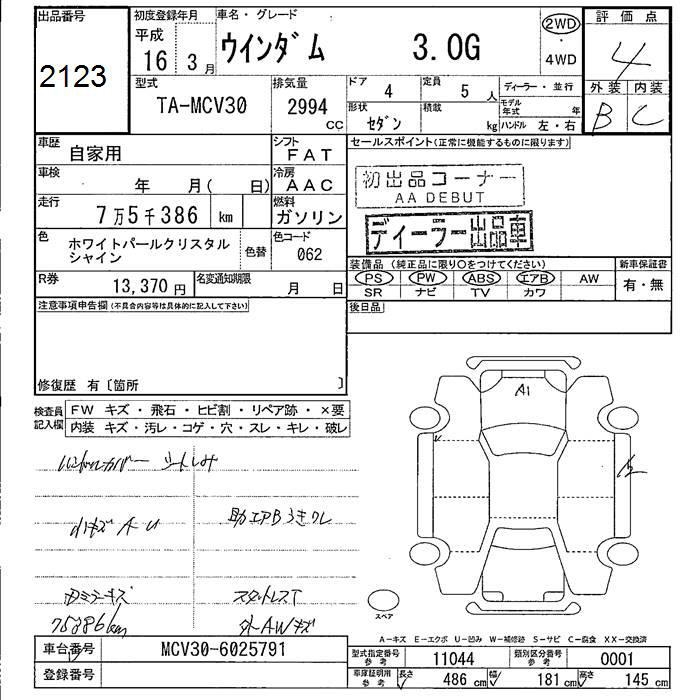 出品番号
2123
初度登録年月
平成
16年3月
車名・グレード
ウインダム 3.0G
2WD
4WD
評価点
4
外装 内装
B C
型式
TA-MCV30
排気量
2994
CC
ドア
4
定員
5人
ディーラー・並行
モデル年式 年
形状
セダン
積載
kg
ハンドル 左・右
車歴
自家用
シフト
FAT
セールスポイント(正常に機能するものに限ります)
車検
年 月( 日)
冷房
AAC
初出品コーナー
AA DEBUT
走行
7万5千386 km
燃料
ガソリン
ディーラー出品車
色
ホワイトパールクリスタル
シャイン
色替
色コード
062
装備品(純正品に限り○をつけてください)
新車保証書
PS PW ABS エアB AW
SR ナビ TV カワ
有・無
R券
13,370円
名変通知期限
月 日
後日品
注意事項申告欄(不具合内容等は具体的に記入して下さい)
修復歴 有〔箇所 〕
検査員
記入欄
FW キズ・飛石・ヒビ割・リペア跡・×要
内装 キズ・汚レ・コゲ・穴・スレ・キレ・破レ
A1
ハンドルカバー シートしみ
小キズ A U
助エアBうきクレ
Dミラーキズ
スタットレスT
75386km
外AWキズ
スペア
A-キズ E-エクボ U-凹み W-補修跡 S-サビ C-腐食 XX-交換済
車台番号
MCV30-6025791
登録番号
型式指定番号
参考
11044
類別区分番号
参考
0001
車庫証明用
参考
長さ
486 cm
幅
181 cm
高さ
145 cm